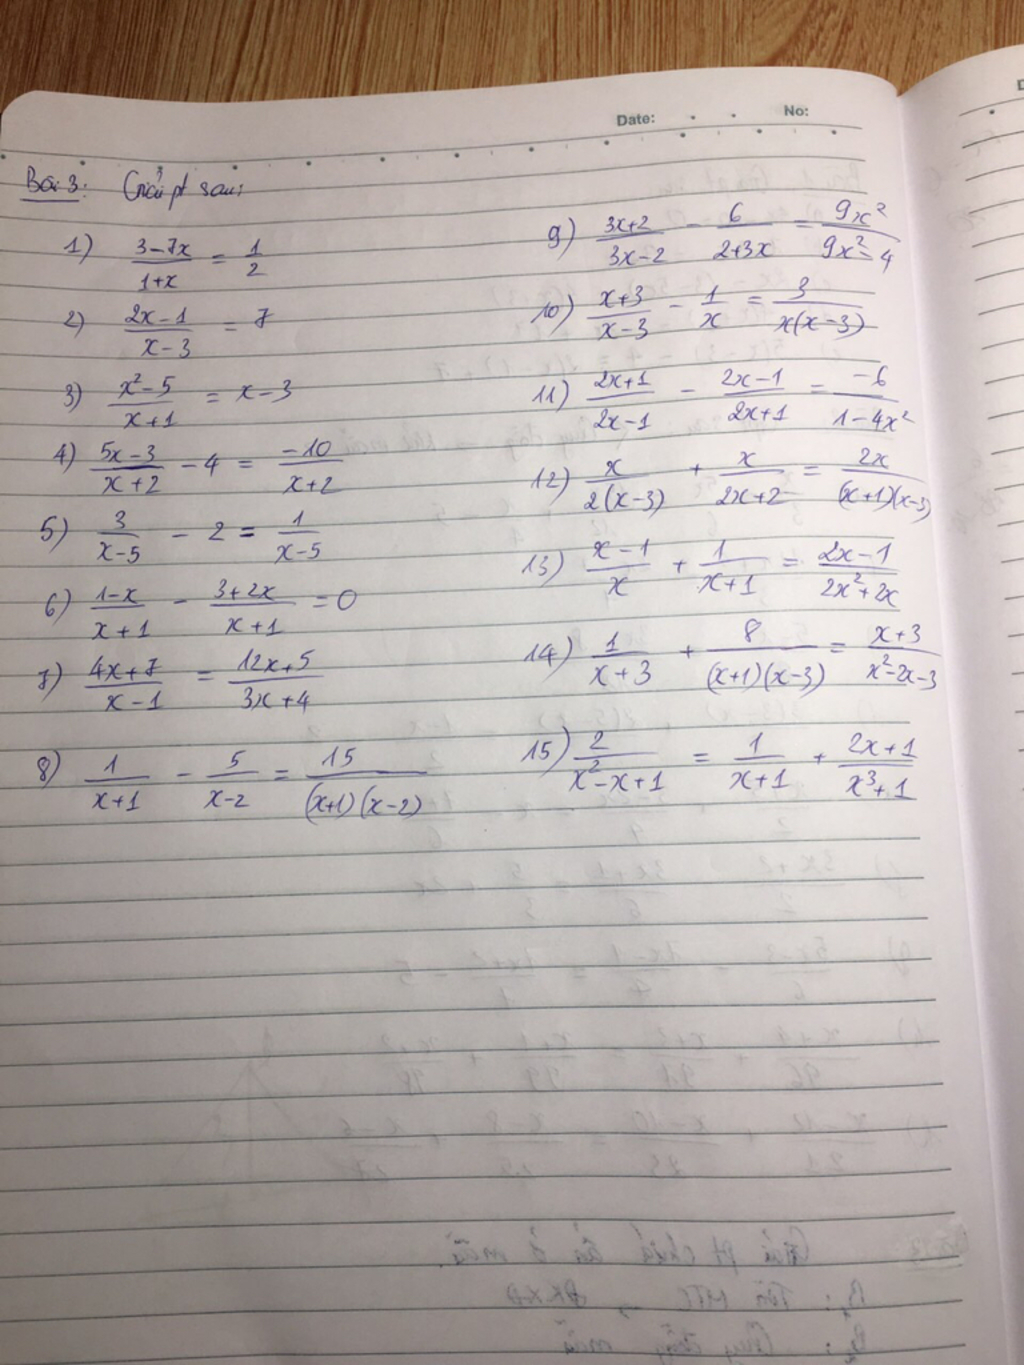 Date: No:
Bài 3: Giải pt sau:
1) \frac{3-7x}{1+x} = \frac{1}{2}
2) \frac{2x-1}{x-3} = 7
3) \frac{x^2-5}{x+1} = x-3
4) \frac{5x-3}{x+2} - 4 = \frac{-10}{x+2}
5) \frac{3}{x-5} - 2 = \frac{1}{x-5}
6) \frac{1-x}{x+1} - \frac{3+2x}{x+1} = 0
7) \frac{4x+7}{x-1} = \frac{12x+5}{3x+4}
8) \frac{1}{x+1} - \frac{5}{x-2} = \frac{15}{(x+1)(x-2)}
9) \frac{3x+2}{3x-2} - \frac{6}{2+3x} = \frac{9x^2}{9x^2-4}
10) \frac{x+3}{x-3} - \frac{1}{x} = \frac{3}{x(x-3)}
11) \frac{2x+1}{2x-1} - \frac{2x-1}{2x+1} = \frac{-6}{1-4x^2}
12) \frac{x}{2(x-3)} + \frac{x}{2x+2} = \frac{2x}{(x+1)(x-3)}
13) \frac{x-1}{x} + \frac{1}{x+1} = \frac{2x-1}{2x^2+2x}
14) \frac{1}{x+3} + \frac{8}{(x+1)(x-3)} = \frac{x+3}{x^2-2x-3}
15) \frac{2}{x^2-x+1} = \frac{1}{x+1} + \frac{2x+1}{x^3+1}